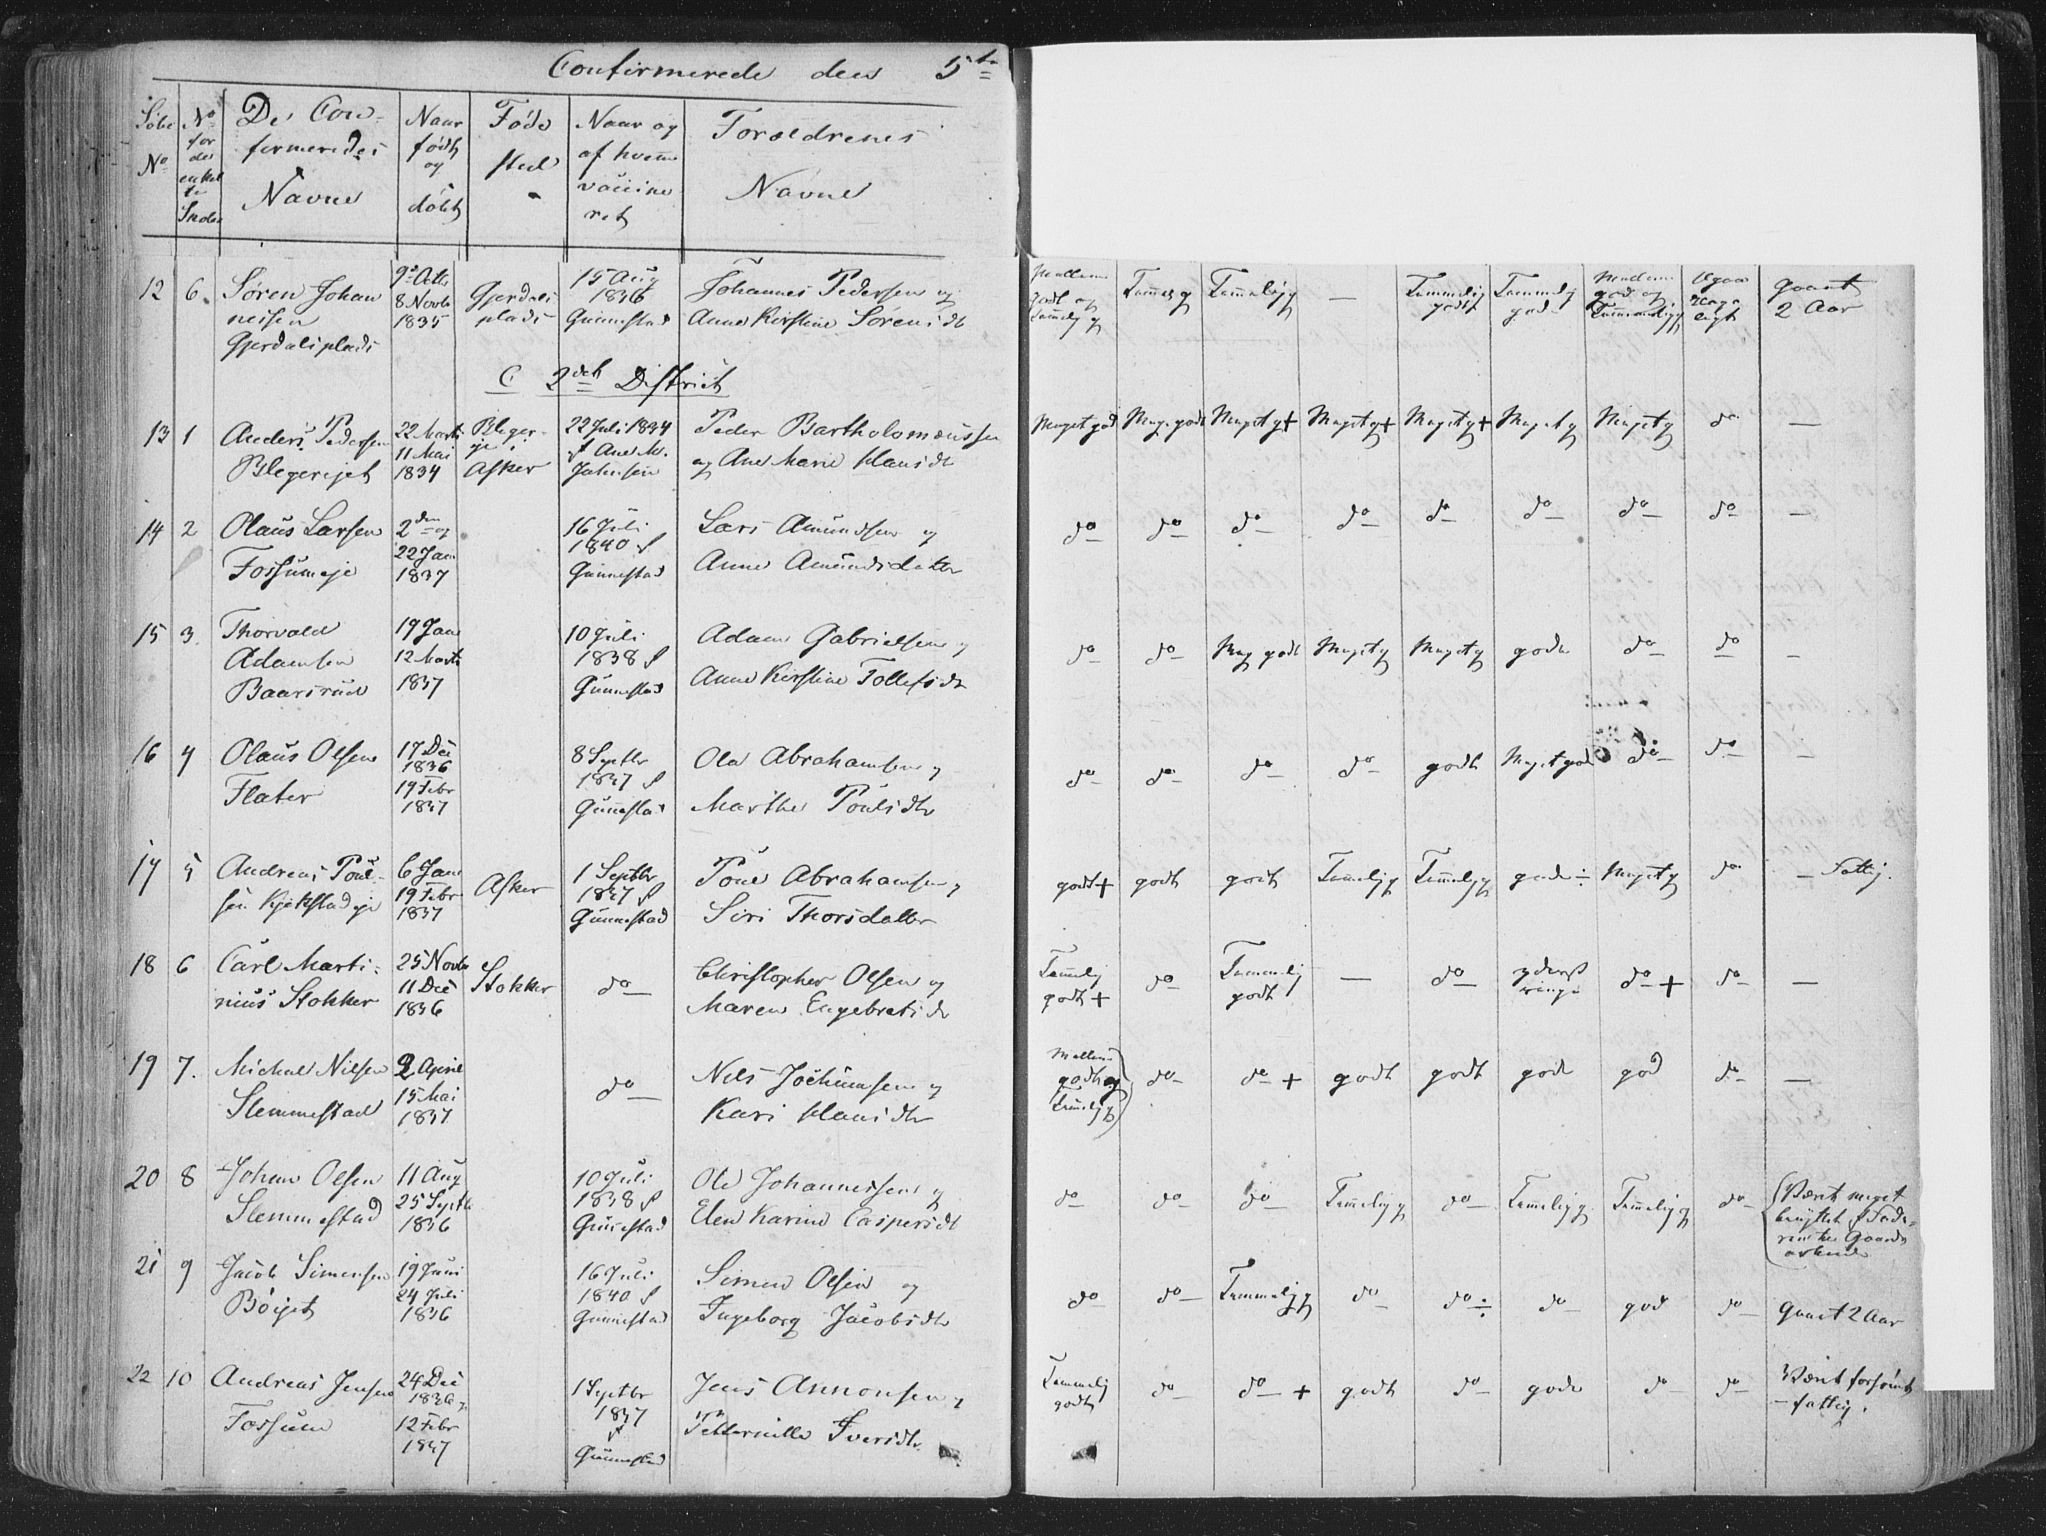 Confirmerede den 5te
Løbe No
No for det enkelte Indb
De Con-
firmeredes
Navne
Naar
født
og
døbt
Føde
sted
Naar og
af hvem
vaccine
ret
Forældrenes
Navne
12 6. Søren Johan
nesen
Gjerdalsplads
9de Octb
8 Novb
1835
Gjerdals
plads
15 Aug
1836
Gunnestad
Johannes Pedersen og
Anne Kirstine Sørensdt
godt og
Tammelig g
Tammelig g
—
Tammelig
godt
Tammelig
god
god og
gaaet
2 Aar
C 2det District
13 1 Anders Pedersen
Blegerijet
22 Marts
11 Mai
1834
Bleger-
ije
Asker
22 Juli 1834
f Ane M.
Johnsen
Peder Bartholomæussen
og Ane Marie Hansdt
Meget god Meg. godt Meget g + Meget g + Meget g + Meget g Meget g do —
14 2 Olaus Larsen
Fossumeje
2den og
22 Jan
1837
16 Juli
1840 f
Gunnestad
Lars Amundsen og
Anne Amundsdatter
do do do do do do do do —
15 3. Thorvald
Adamsen
Baarsrud
19 Jan
12 Marts
1837
10 Juli
1838 f
Gunnestad
Adam Gabrielsen og
Anne Kirstine Tollefsdt
do do Meg godt Meget g Meget g gode do do —
16 4 Olaus Olsen
Flater
17 Dec
1836
19 Febr
1837
8 Septbr
1837 f
Gunnestad
Ole Abrahamsen og
Marthe Poulsdtr
do do do do godt Meget god do do —
17 5 Andreas Poul-
sen Kjekstadeje
6 Jan
19 Febr
1837
Asker
1 Septbr
1837 f
Gunnestad
Poul Abrahamsen og
Siri Thorsdatter
godt + godt godt Tammelig g Tammelig g gode ÷ Meget g do — Fattig.
18 6 Carl Marti-
nius Stokker
25 Novb
11 Dec
1836
Stokker
do
Christopher Olsen og
Maren Engebretsdt
Tammelig
godt +
do
Tammelig
godt
—
do
yderst
ringe
do +
do
—
19 7. Michal Nilsen
Slemmestad
2 April
15 Mai
1837
do
Nils Jochumsen og
Kari Hansdtr
Mellem
godt og
Tammelig g
do do + godt godt gode god do —
20 8 Johan Olsen
Slemmestad
11 Aug
25 Septb
1836
10 Juli
1838 f
Gunnestad
Ole Johannessen og
Elen Karine Caspersdt
do do do Tammelig g do Tammelig g Tammelig g do
Været meget
benyttet f Fade-
ren til Gaards
arbeide
21 9 Jacob Simensen
Böiget
19 Juni
24 Juli
1836
16 Juli
1840 f
Gunnestad
Simen Olsen og
Ingeborg Jacobsdtr
do do Tammelig g do do ÷ do god do Gaaet 2 Aar
22 10 Andreas Jensen
Fossum
24 Dec
1836 og
12 Febr
1837
1 Septbr
1837
f
Gunnestad
Jens Annonsen og
Petternille Iversdtr
Tammelig
godt
do do + godt do gode do do
Været forsömt
– fattig.